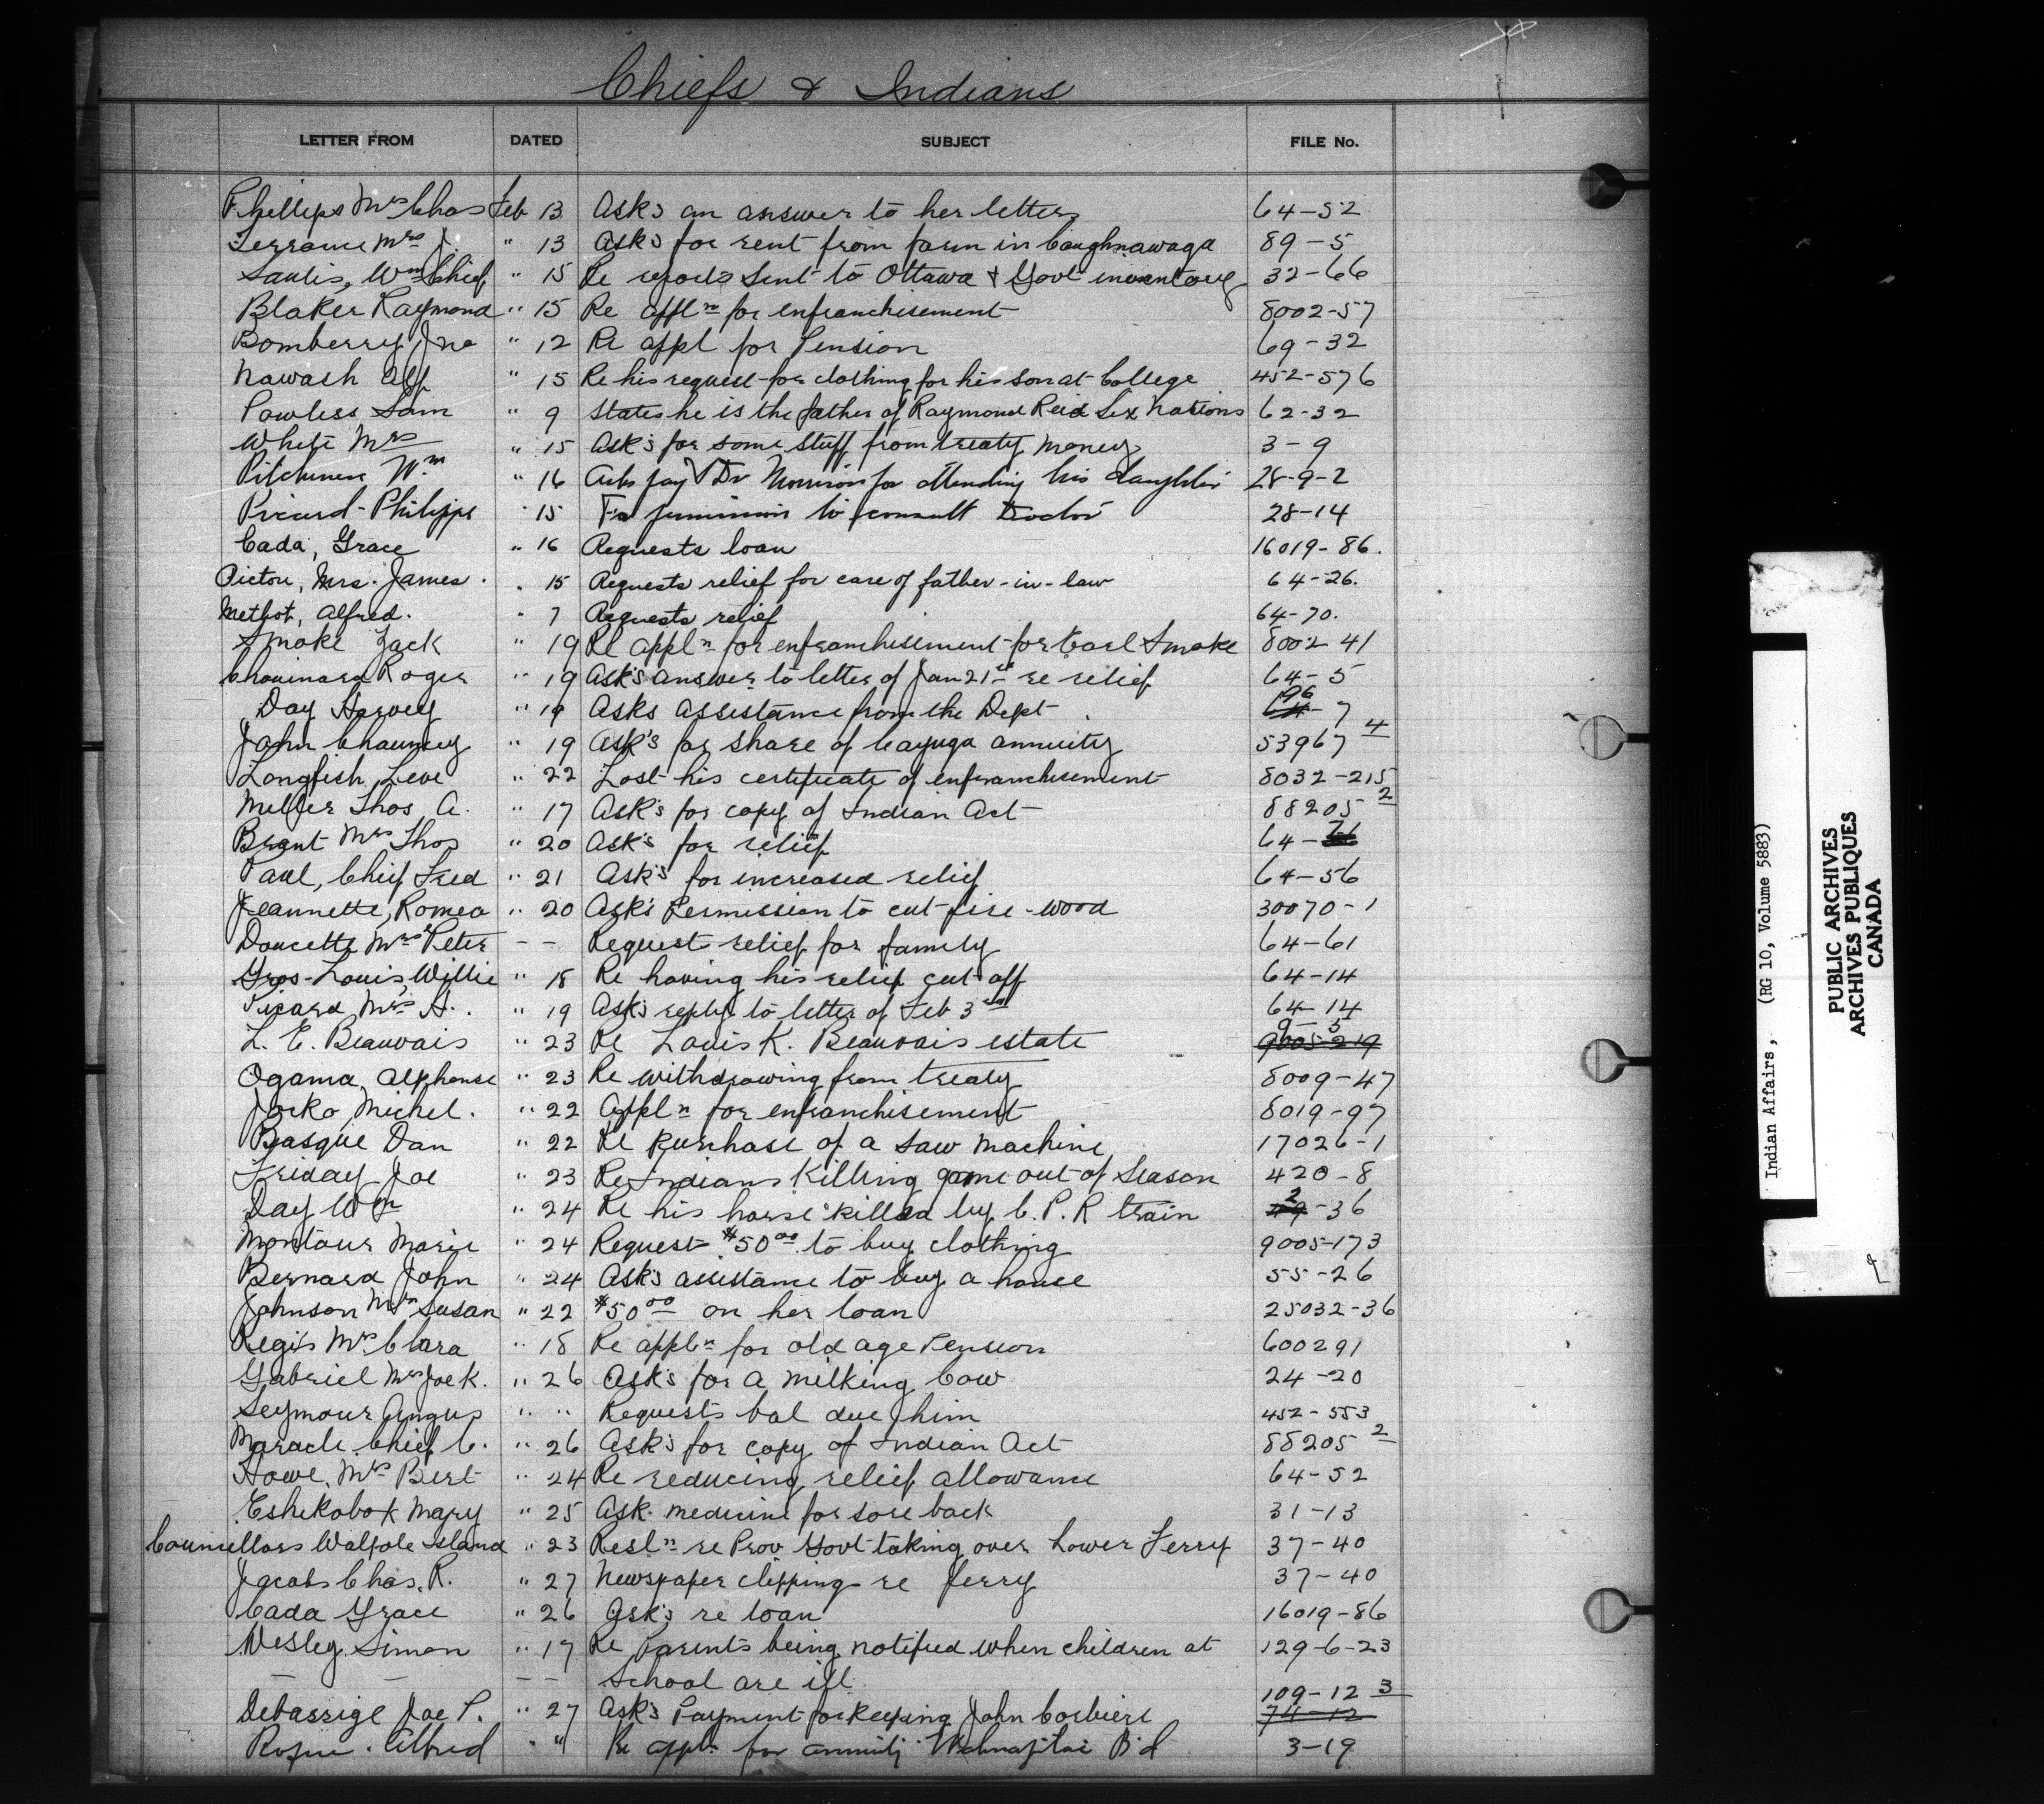 Chiefs & Indians
LETTER FROM DATED SUBJECT FILE No.
Phillips Mrs Chas Feb 13 Ask's an answer to her letters 64-52
Terrance Mrs J. " 13 Ask's for rent from farm in Caughnawaga 89-5
Saulis, Wm Chief " 15 Re reports sent to Ottawa & Govt inventory 32-66
Blaker Raymond " 15 Re appln for enfranchisement 8002-57
Bomberry Jno " 12 Re appl for Pension 69-32
Nawash Alf " 15 Re his request for clothing for his son at College 452-576
Powless Sam " 9 States he is the father of Raymond Reid Six Nations 62-32
White Mrs " 15 Ask's for some stuff from treaty money 3-9
Wm " 16 Asks pay Dr Morrison for attending his daughter 28-9-2
Picard Philippe " 15 For permission to consult Doctor 28-14
Cada, Grace " 16 Requests loan 16019-86.
Pictou, Mrs. James. " 15 Requests relief for care of father-in-law 64-26.
Methot, Alfred. " 7 Requests relief 64-70.
Smoke Jack " 19 Re appln for enfranchisement for Earl Smoke 8002 41
Chouinard Roger " 19 Ask's answer to letter of Jan 21st re relief 64-5
Day Harvey " 19 Asks assistance from the Dept 96-7
John Chauncey " 19 Ask's for share of Cayuga annuity 53967 4
Longfish Levi " 22 Lost his certificate of enfranchisement 8032-215
Miller Thos A. " 17 Ask's for copy of Indian Act 88205 2
Brant Mrs Thos " 20 Ask's for relief 64-
Paul, Chief Fred " 21 Ask's for increased relief 64-56
Jeannette, Romeo " 20 Ask's Permission to cut fire-wood 30070-1
Doucette Mrs Peter - - Request relief for family 64-61
Gros-Louis, Willie " 18 Re having his relief cut off 64-14
Picard Mrs A. " 19 Ask's reply to letter of Feb 3rd 64-14
L. E. Beauvais " 23 Re Louis K. Beauvais estate 9-5 9005-219
Ogama, Alphonse " 23 Re withdrawing from treaty 8009-47
Jocko, Michel. " 22 Appln for enfranchisement 8019-97
Basque Dan " 22 Re purchase of a saw machine 17026-1
Friday Joe " 23 Re Indians killing game out of season 420-8
Day Wm " 24 Re his horse killed by C.P.R train 2-36
Montour Marie " 24 Request $50.00 to buy clothing 9005-173
Bernard John " 24 Ask's assistance to buy a house 55-26
Johnson Mrs Susan " 22 $50.00 on her loan 25032-36
Regis Mrs Clara " 18 Re appln for old age Pension 600291
Gabriel Mrs Joe K. " 26 Ask's for a milking Cow 24-20
Seymour Angus " " Requests bal due him 452-553
Maracle Chief C. " 26 Ask's for copy of Indian Act 88205 2
Howe, Mrs Bert " 24 Re reducing relief allowance 64-52
Eshkabok Mary " 25 Ask. medicine for sore back 31-13
Councillors Walpole Island " 23 Resln re Prov Govt taking over Lower Ferry 37-40
Jacobs Chas. R. " 27 Newspaper clipping re Ferry 37-40
Cada Grace " 26 Ask's re loan 16019-86
Wesley Simon " 17 Re Parents being notified when children at 129-6-23
- - - - School are ill
109-12 3
Debassige Joe P. " 27 Ask's Payment for keeping John Corbiere 74-12
Alfred " " Re appln for annuity Wahnapitae Bd 3-19
Indian Affairs, (RG 10, Volume 5883)
PUBLIC ARCHIVES
ARCHIVES PUBLIQUES
CANADA